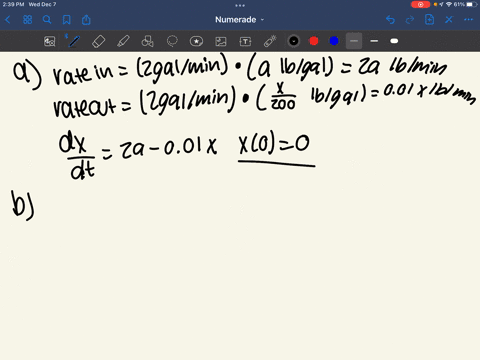 2:39 PM Wed Dec 7
61%
Numerade
a) rate in = (2gal/min) • (a lb/gal) = 2a lb/min
rate out = (2gal/min) • (x/200 lb/gal) = 0.01x lb/min
dx/dt = 2a - 0.01x x(0) = 0
b)